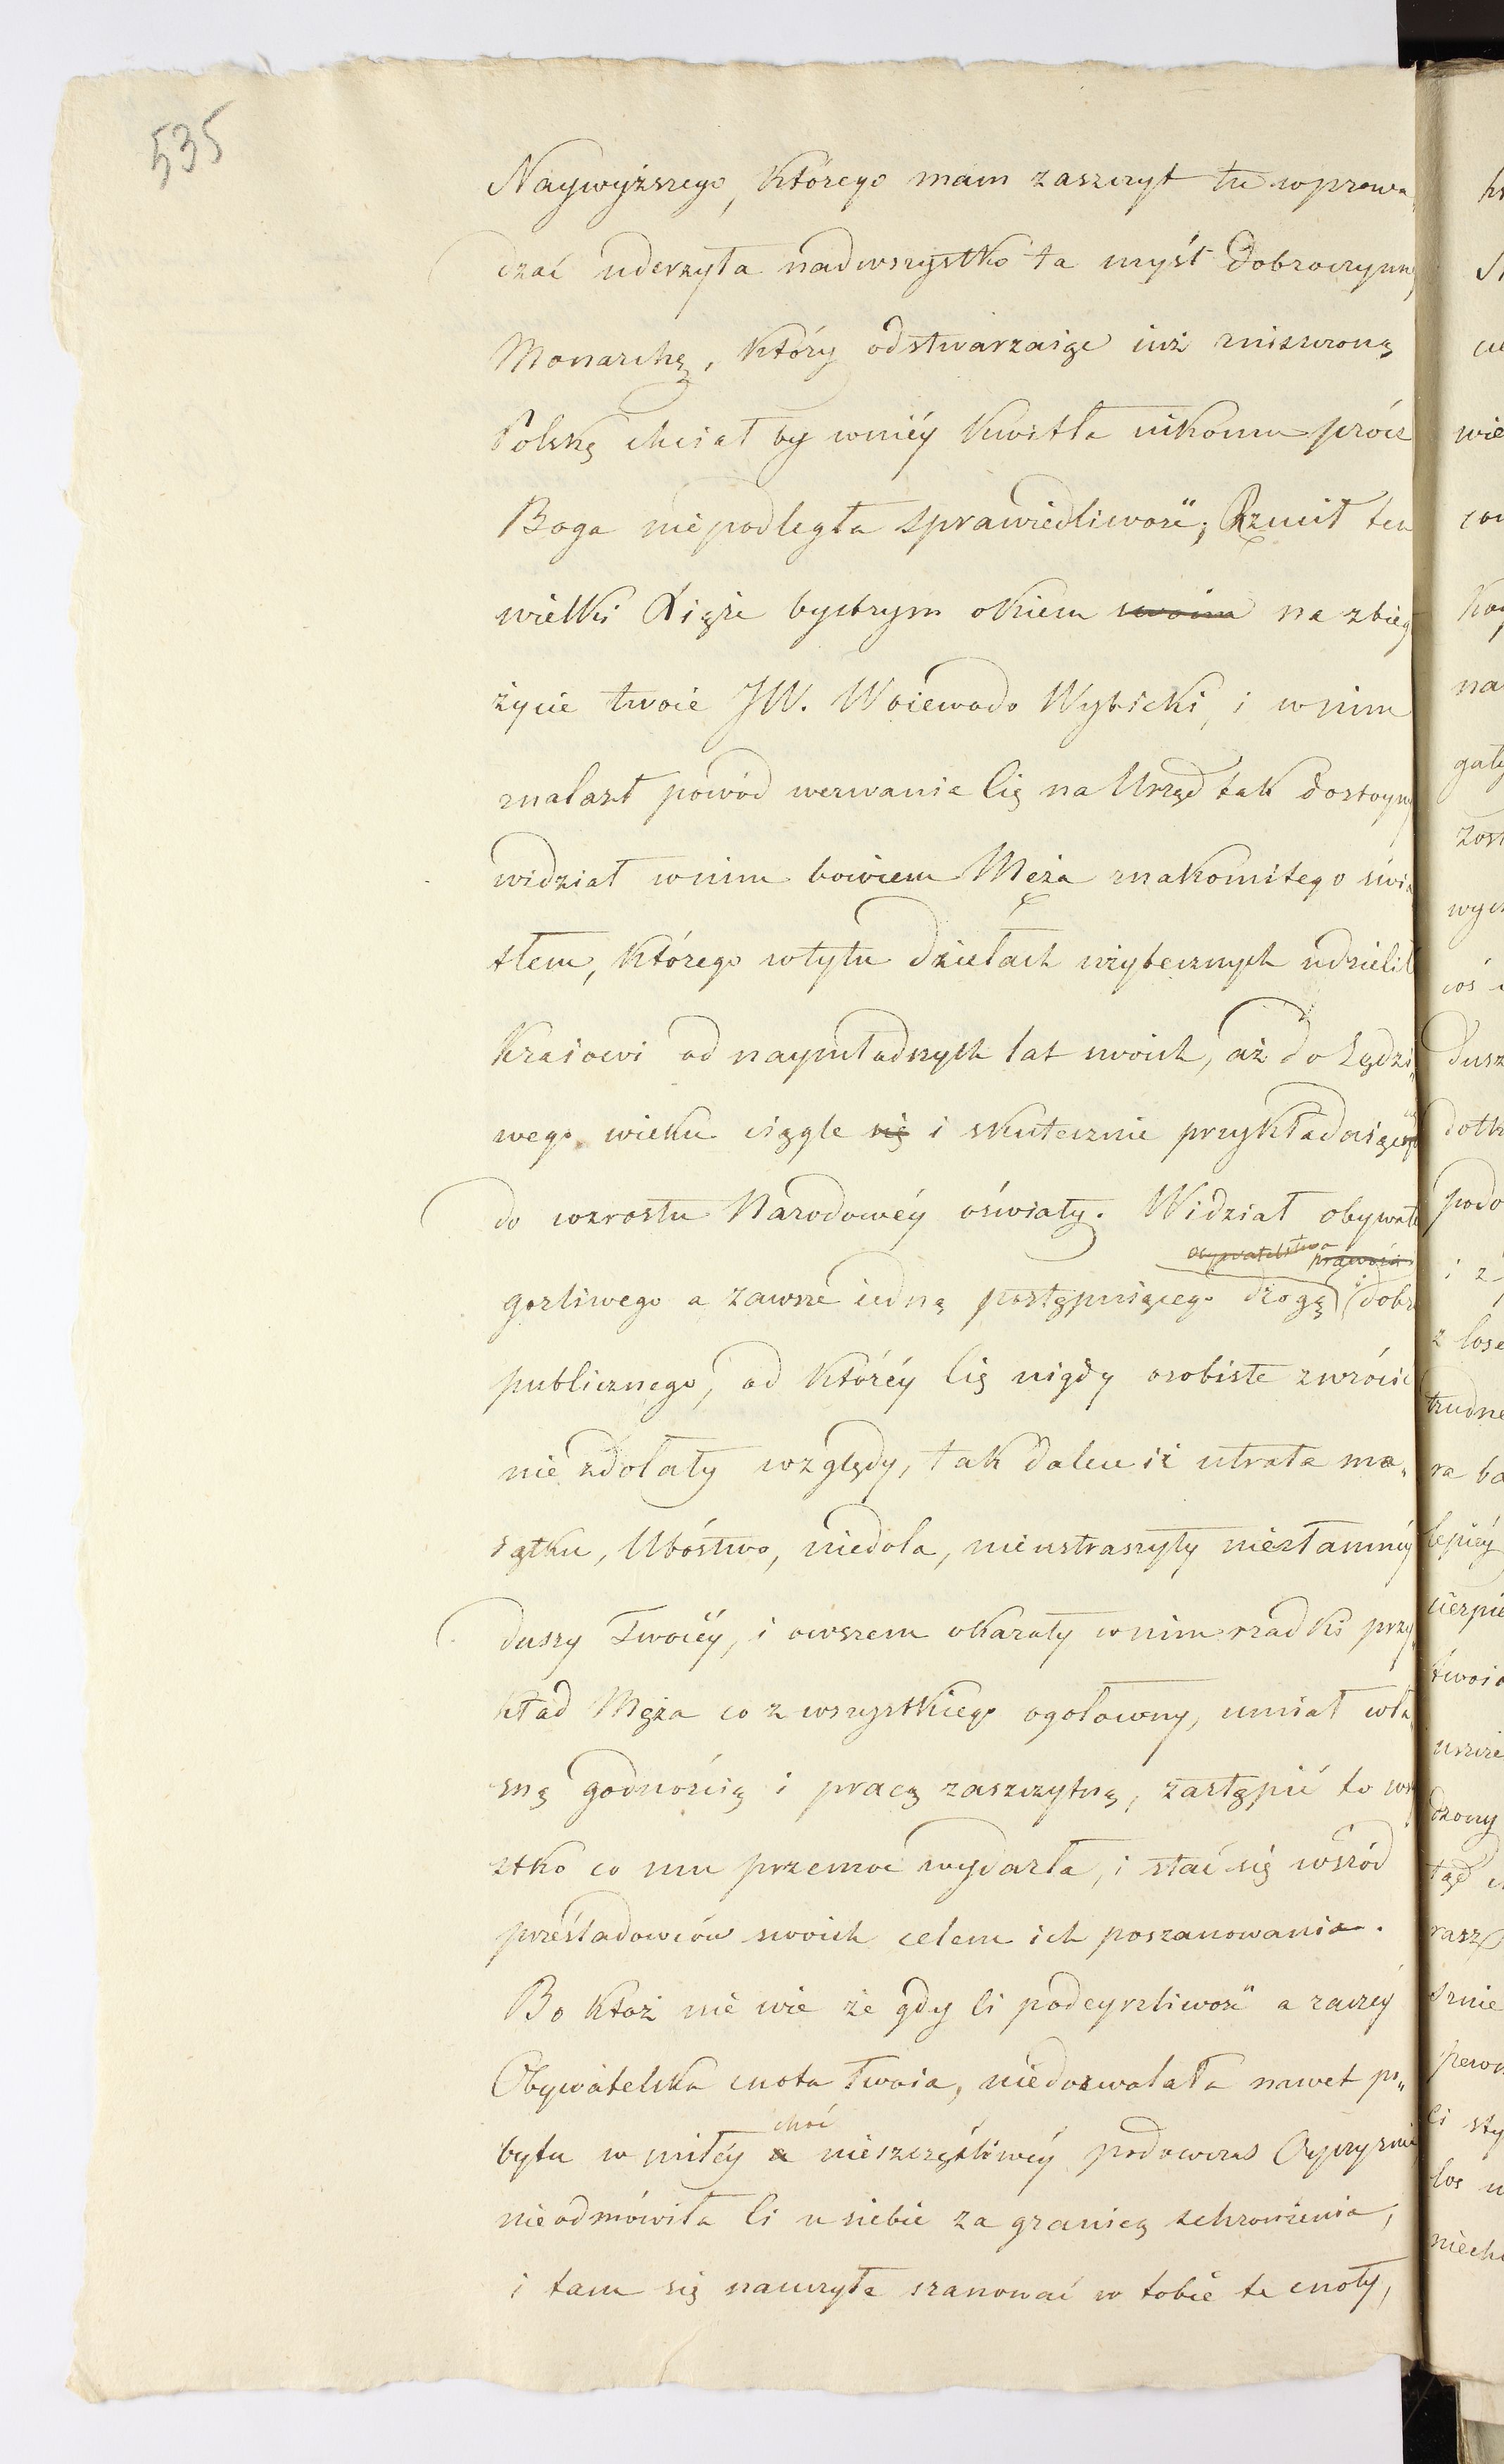 535
Naywyższego, którego mam zaszczyt tu wprowa
dzać uderzyła nadwszystko ta myśl Dobroczynn
Monarchę, który odstwarzaiąc iuż zniszczoną
Polskę chciał by wniéy kwitła nikomu prócz
Boga niepodległa sprawiedliwość; Rzucił ten
wielki Xiąże bystrym okiem swoim na zbieg
życie twoie JW. Woiewodo Wybicki, i wnim
znalazł powód wezwania Cię na Urząd tak dostoyny
widział wnim bowiem Męża znakomitego świa
tłem, którego wtylu dziełach użytecznych udzielił
kraiowi od naymłodszych lat swoich, aż do sędzi„
wego wieku ciągle się i skutecznie przykładaiąc
do wzrostu Narodowéy oświaty. Widział obywate
obywatelstwa prawości
gorliwego a zawsze iedną postępuiącego drogą dobr
publicznego, od któréy Cię nigdy osobiste zwrócić
nie zdołały względy, tak dalece iż utrata ma„
iątku, Ubóstwo, niedola, nieustraszyły niezłamnéy
duszy Twoiéy, i owszem okazały wnim rzadki przy
kład Męża co z wszystkiego ogołocony, umiał wła
sną godnością i pracą zaszczytną, zastąpić to wszy
stko co mu przemoc wydarła, i stać się wśród
prześladowców swoich celem ich poszanowania.
Bo któż nie wie że gdy Ci podeyrzliwość a raczéy
Obywatelska cnota Twoia, niedozwalała nawet po„
choć
bytu w miłéy a nieszczęśliwéy podówczas Oyczyznie
nieodmówiła Ci u siebie za granicą schronienia,
i tam się nauczyła szanować w tobie te cnoty,